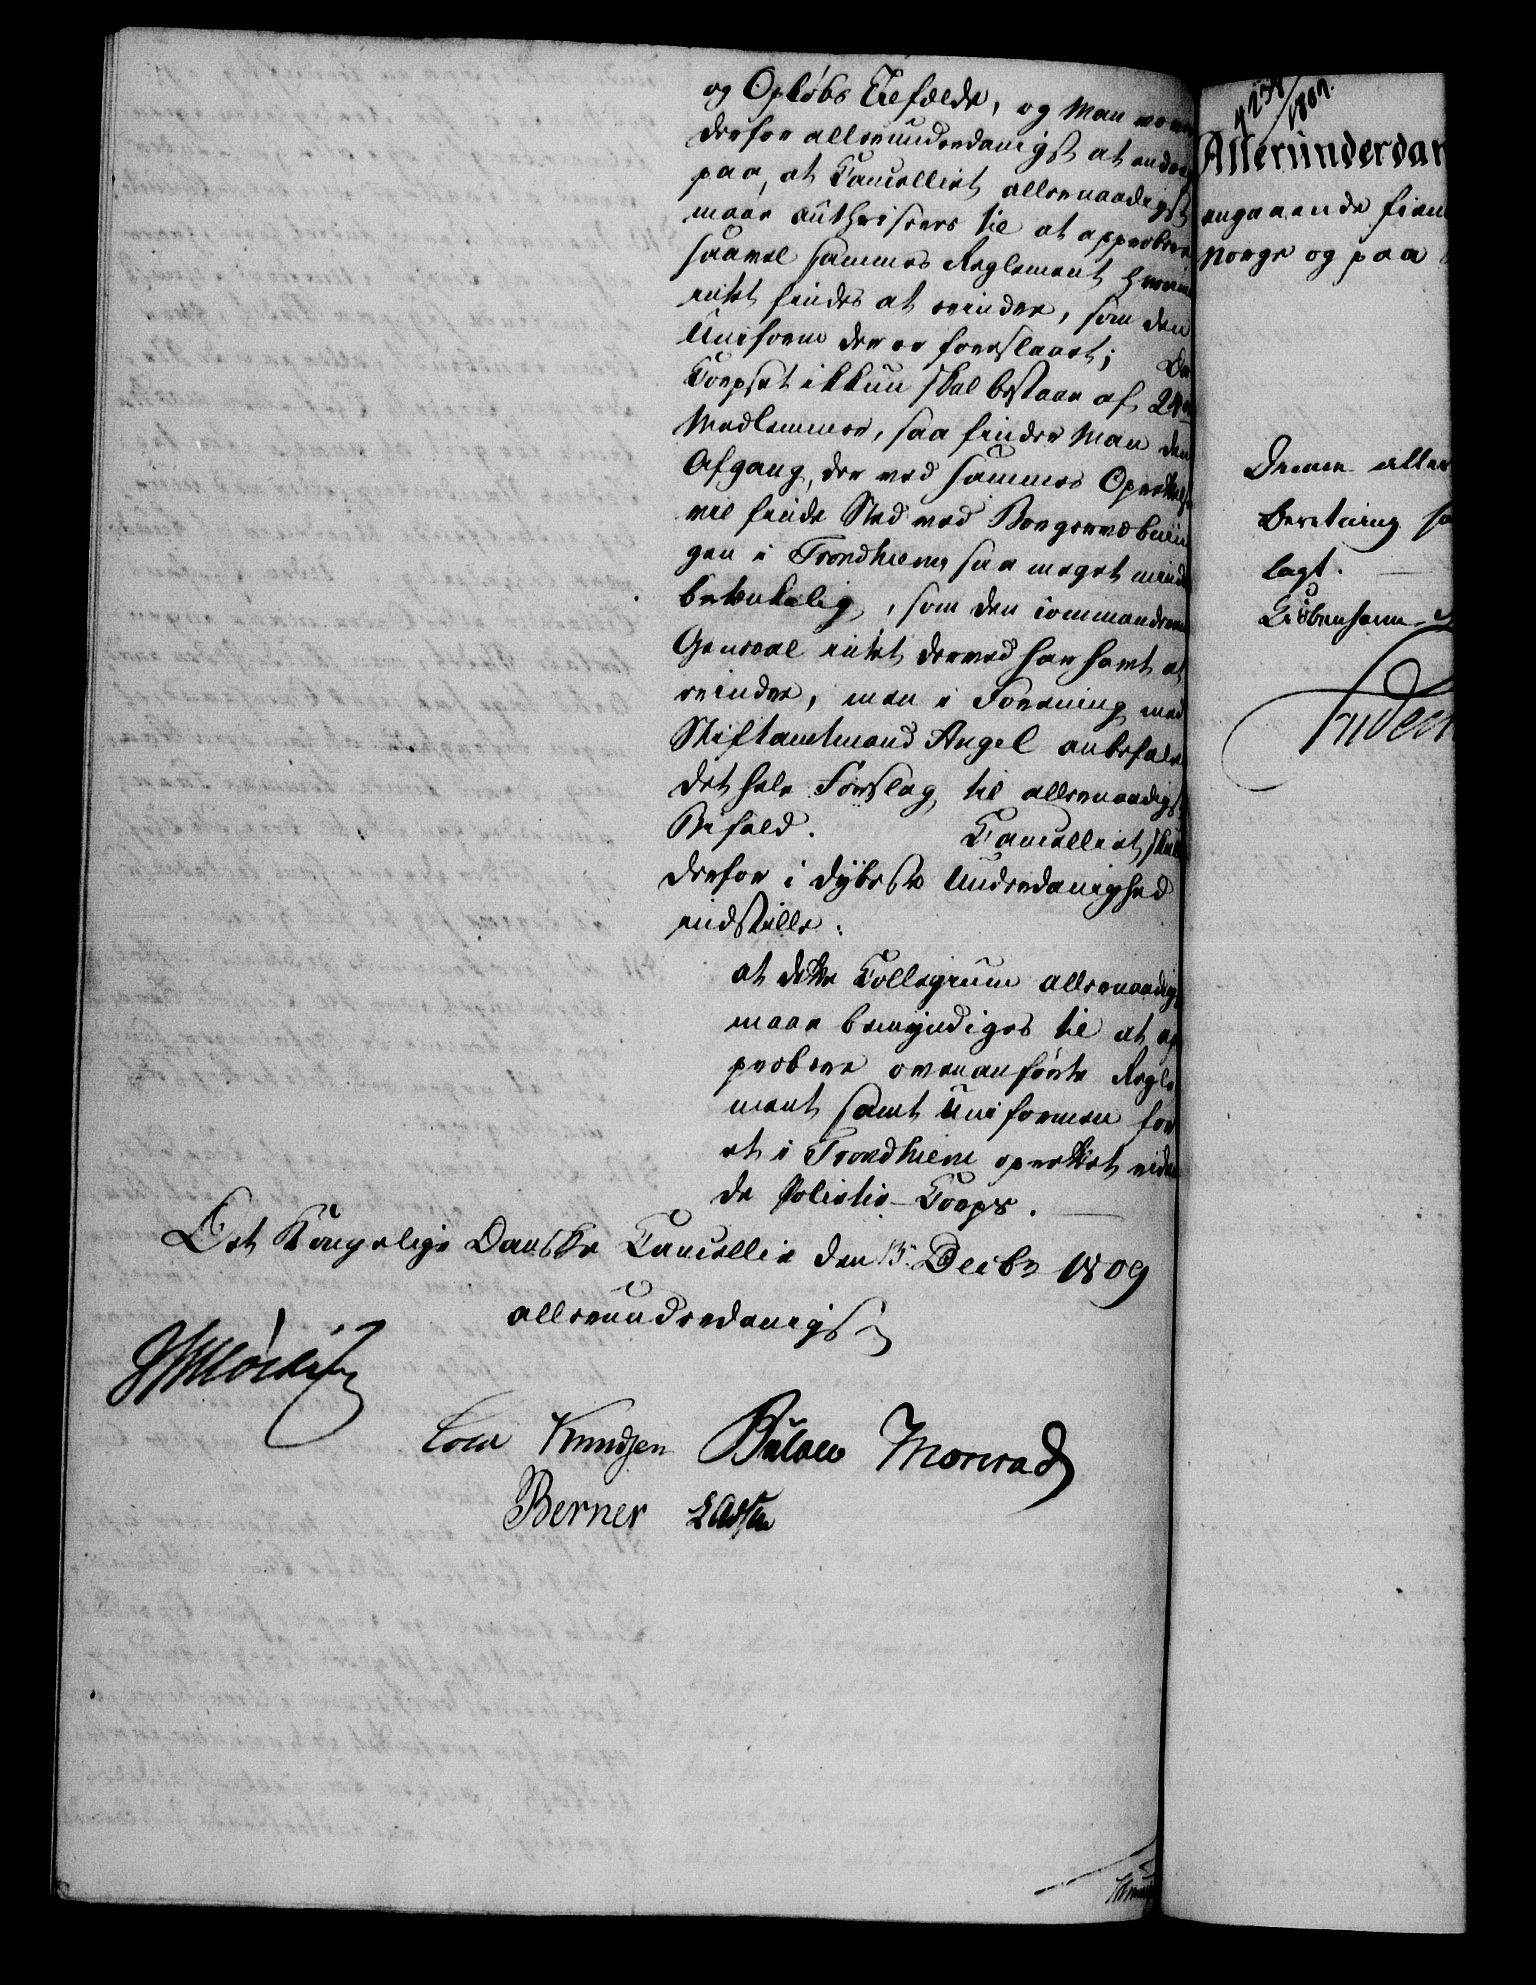 og Opløbs Tilfælde, og Man
derfor allerunderdanigst at
paa, at Cancelliet allernaadigst
maae authoriseres til at approbere
saavel sammes Reglement
intet findes at erindre, som den
Uniform der er foreslaaet; Da
Corpset ikkun skal bestaae af 24
Medlemmer, saa finder Man den
Afgang, der ved sammes Oprettelse
vil finde Sted ved Borgervæbnin
gen i Trondhiem saa meget mindre
betænkelig, som den commanderende
General intet derved har havt at
erindre, men i Forening med
Stiftamtmand Angel anbefaler
det hele Forslag til allernaadigst
Bifald. Cancelliet skulde
derfor i dybeste Underdanighed
indstille:
at dette Collegium allernaadigst
maae bemyndiges til at ap
probere ovenanførte Regle
ment samt Uniformen for
et i Trondhiem oprettet riden
de Politie-Corps.
Det Kongelige Danske Cancellie den 15 Decbr 1809
allerunderdanigst
Cold Knudsen Bülow Monrad
Berner
1809.
Allerunderdan
angaaende
Norge og paa
Denne aller
Beretning
lagt.
Kiøbenhavn
Frideri